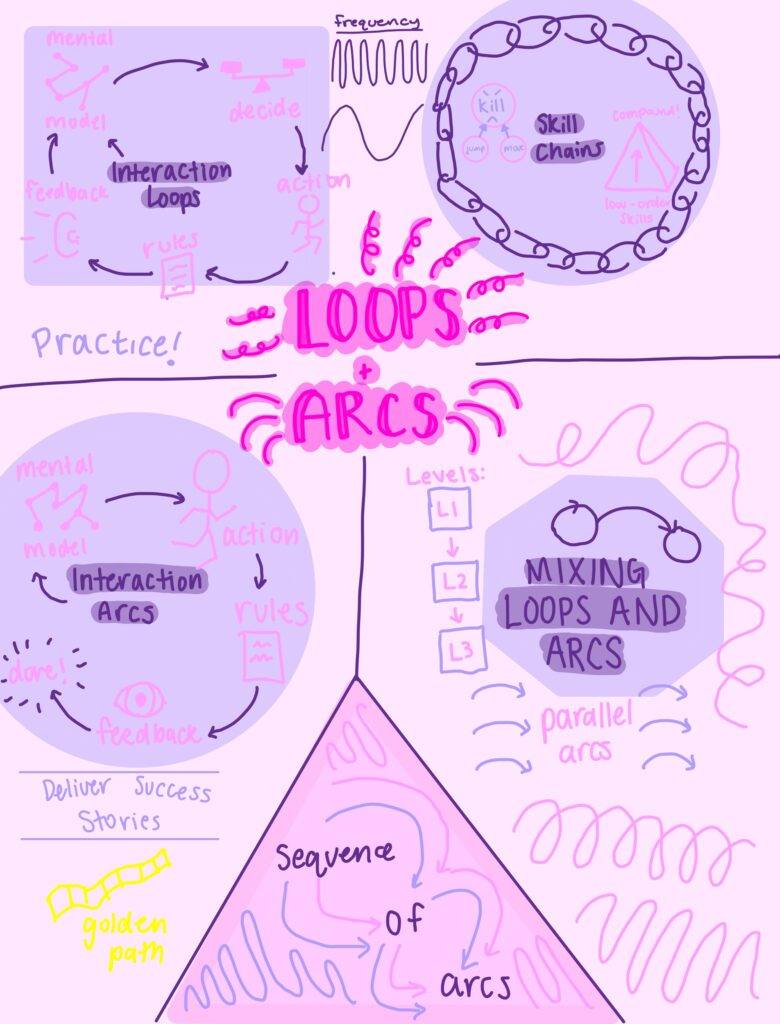 frequency
mental
model
decide
action
rules
feedback
Interaction
Loops
Practice!
Kill
jump
move
Skill
Chains
compound!
low-order
skills
LOOPS
+
ARCS
mental
model
action
rules
feedback
done!
Interaction
Arcs
Deliver Success
Stories
golden
path
Levels:
L1
L2
L3
MIXING
LOOPS AND
ARCS
parallel
arcs
Sequence
of
arcs